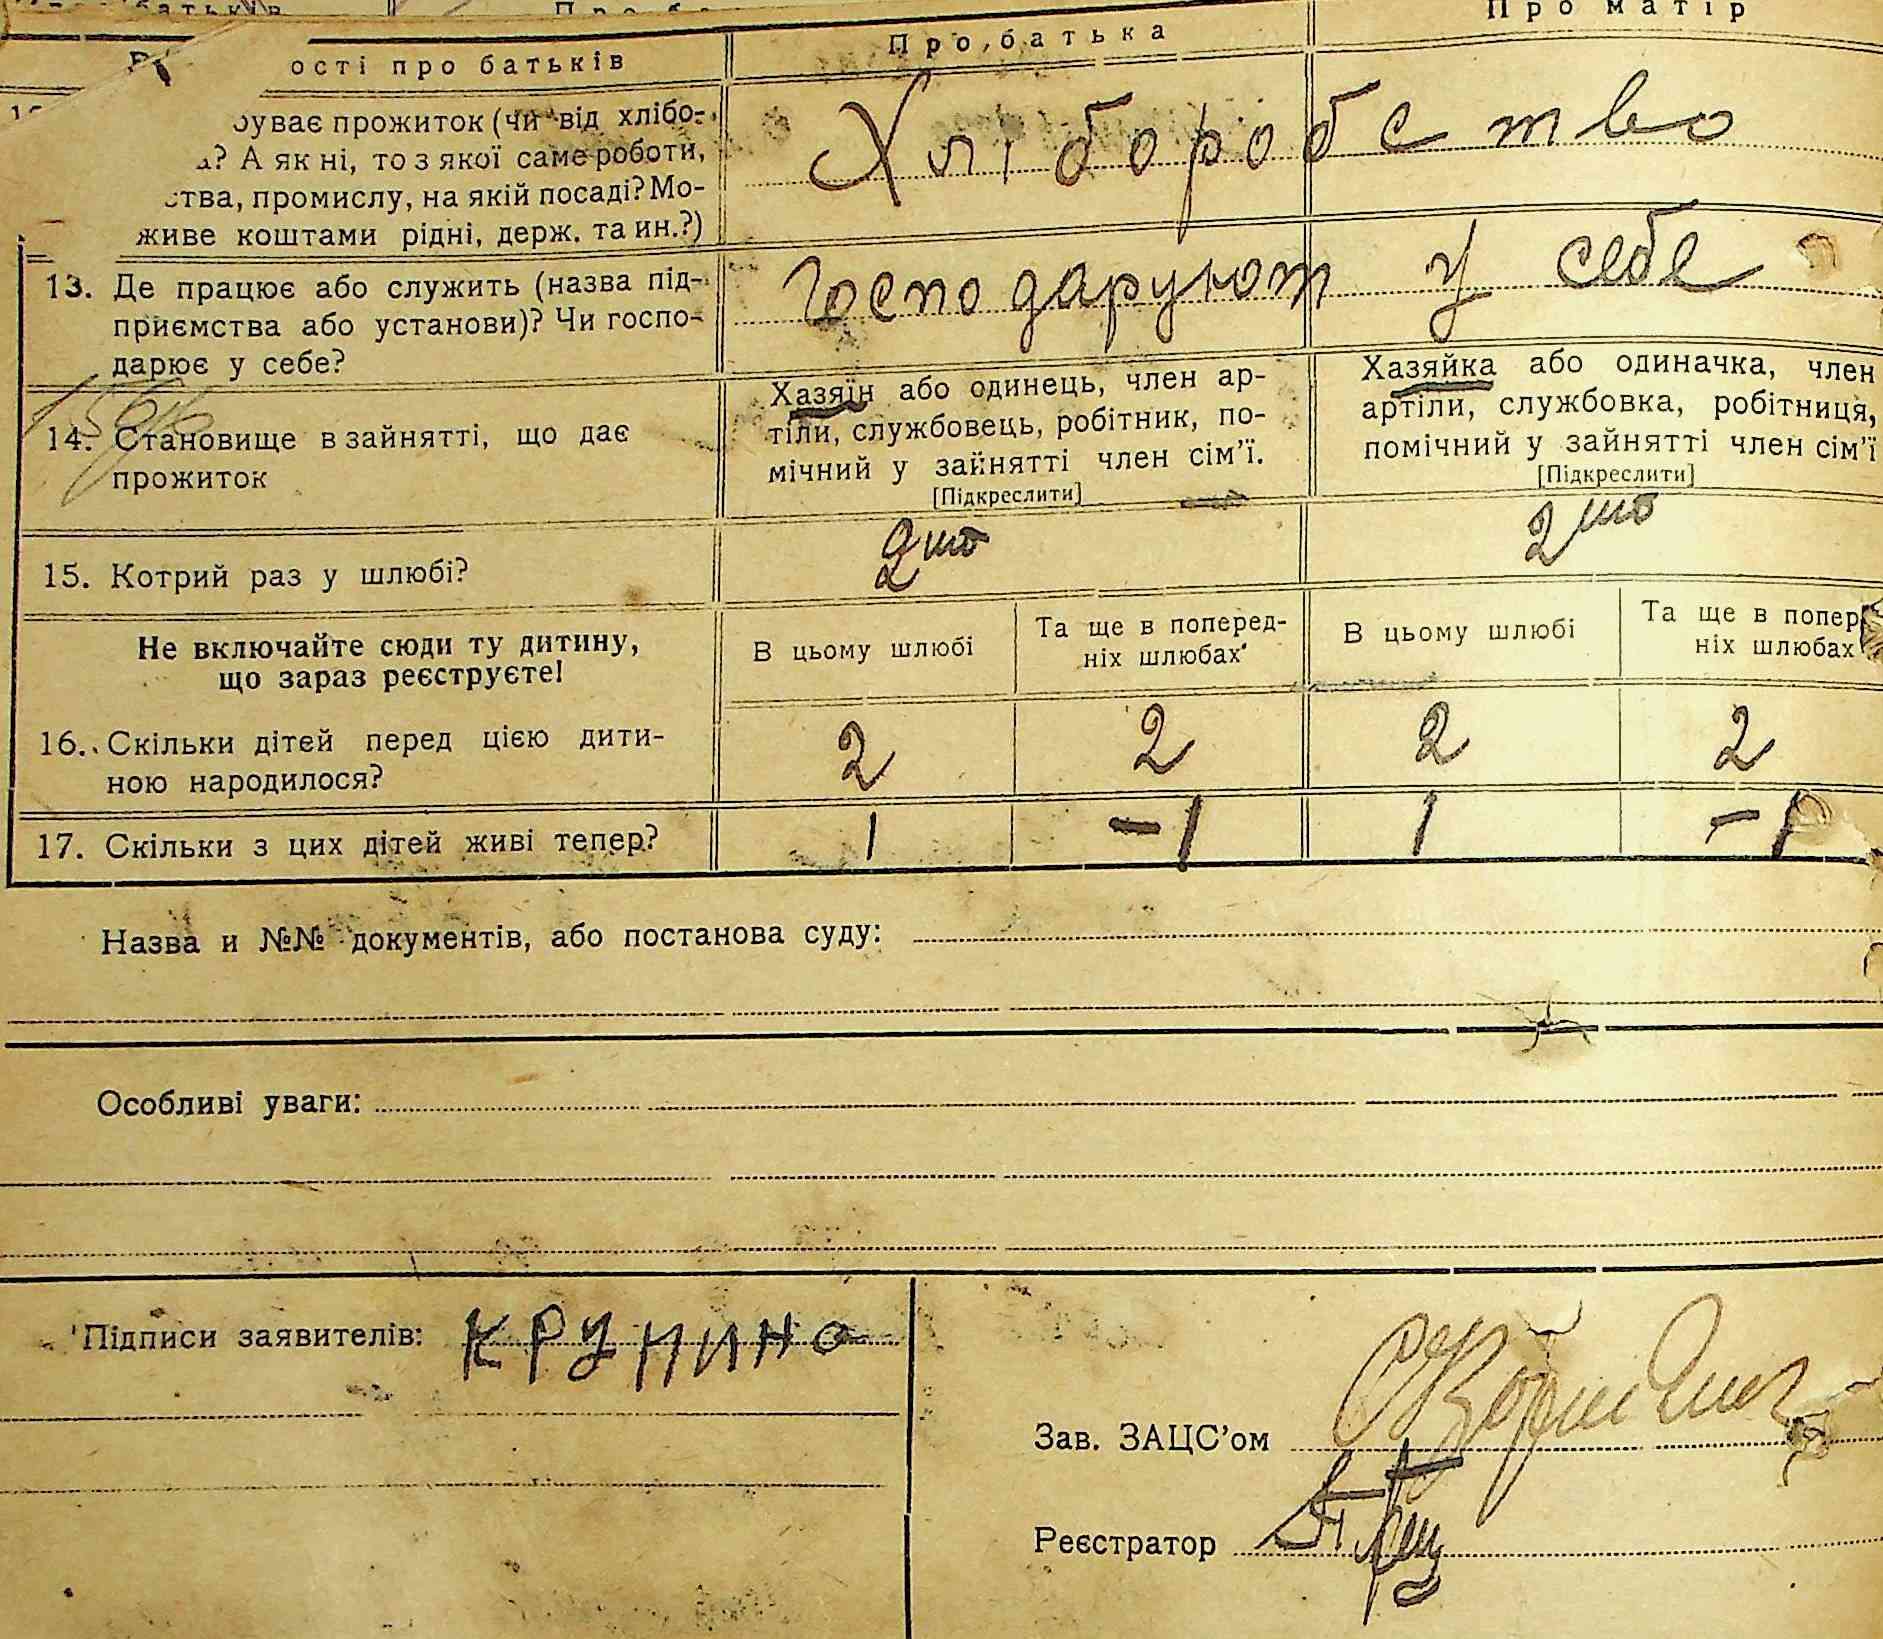 ості про батьків
Про батька
Про матір
рував прожиток (чи від хлібо-
а? А як ні, то з якої саме роботи,
ства, промислу, на якій посаді? Мо-
живе коштами рідні, держ. та ин.?)
Хліборобство
13. Де працює або служить (назва під-
приємства або установи)? Чи госпо-
дарює у себе?
Господарюют у себе
14. Становище в зайнятті, що дає
прожиток
Хазяїн або одинець, член ар-
тіли, службовець, робітник, по-
мічний у зайнятті член сім'ї.
[Підкреслити]
Хазяйка або одиначка, член
артіли, службовка, робітниця,
помічний у зайнятті член сім'ї
[Підкреслити]
15. Котрий раз у шлюбі?
2
2
Не включайте сюди ту дитину,
що зараз реєструєте!
В цьому шлюбі
Та ще в поперед-
ніх шлюбах
В цьому шлюбі
Та ще в попер
ніх шлюбах
16. Скільки дітей перед цією дити-
ною народилося?
2 2 2 2
17. Скільки з цих дітей живі тепер?
1 -1 1 -1
Назва и №№ документів, або постанова суду:
Особливі уваги:
Підписи заявителів:
Зав. ЗАЦС'ом
Реєстратор